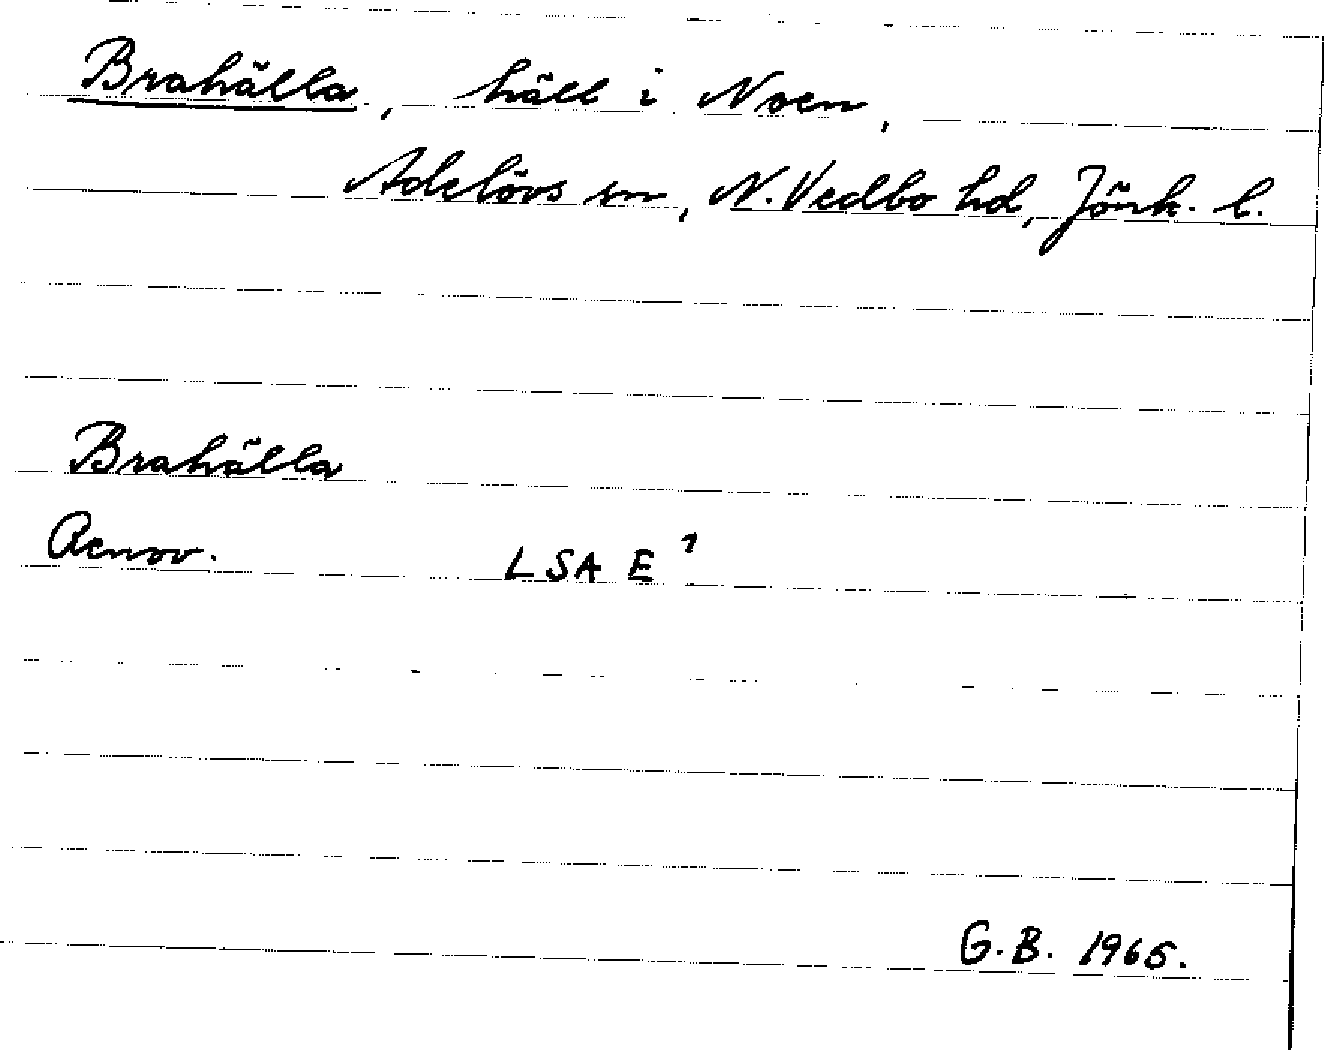 Brahälla, häll i Noen,
Adelövs sn, N. Vedbo hd, Jönk. l.
Brahälla
Renov. LSA E¹
G.B. 1965.